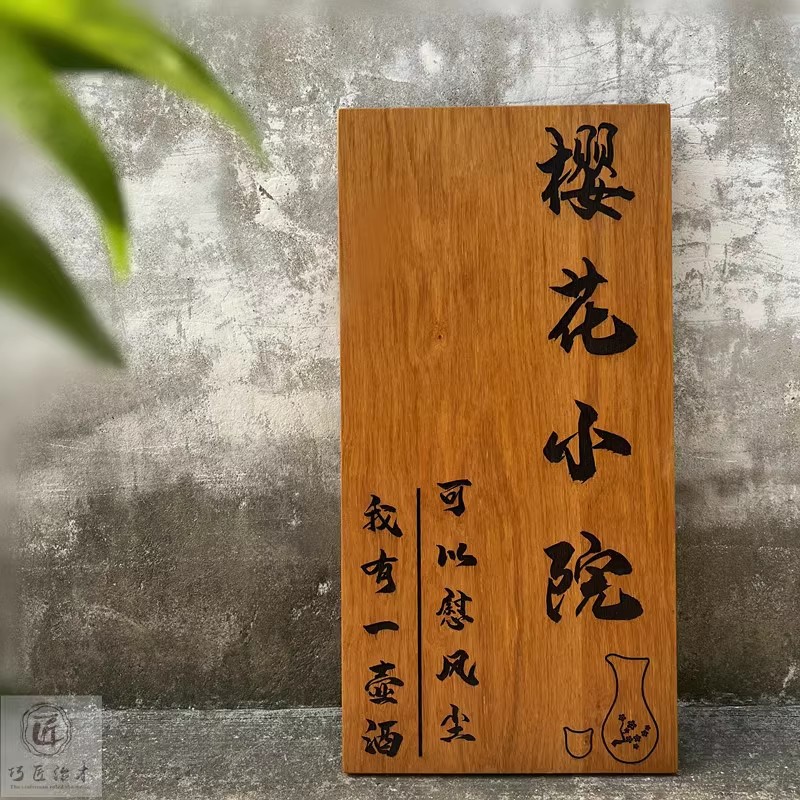 櫻花小院
可以慰风尘
我有一壶酒
匠
巧匠繪才